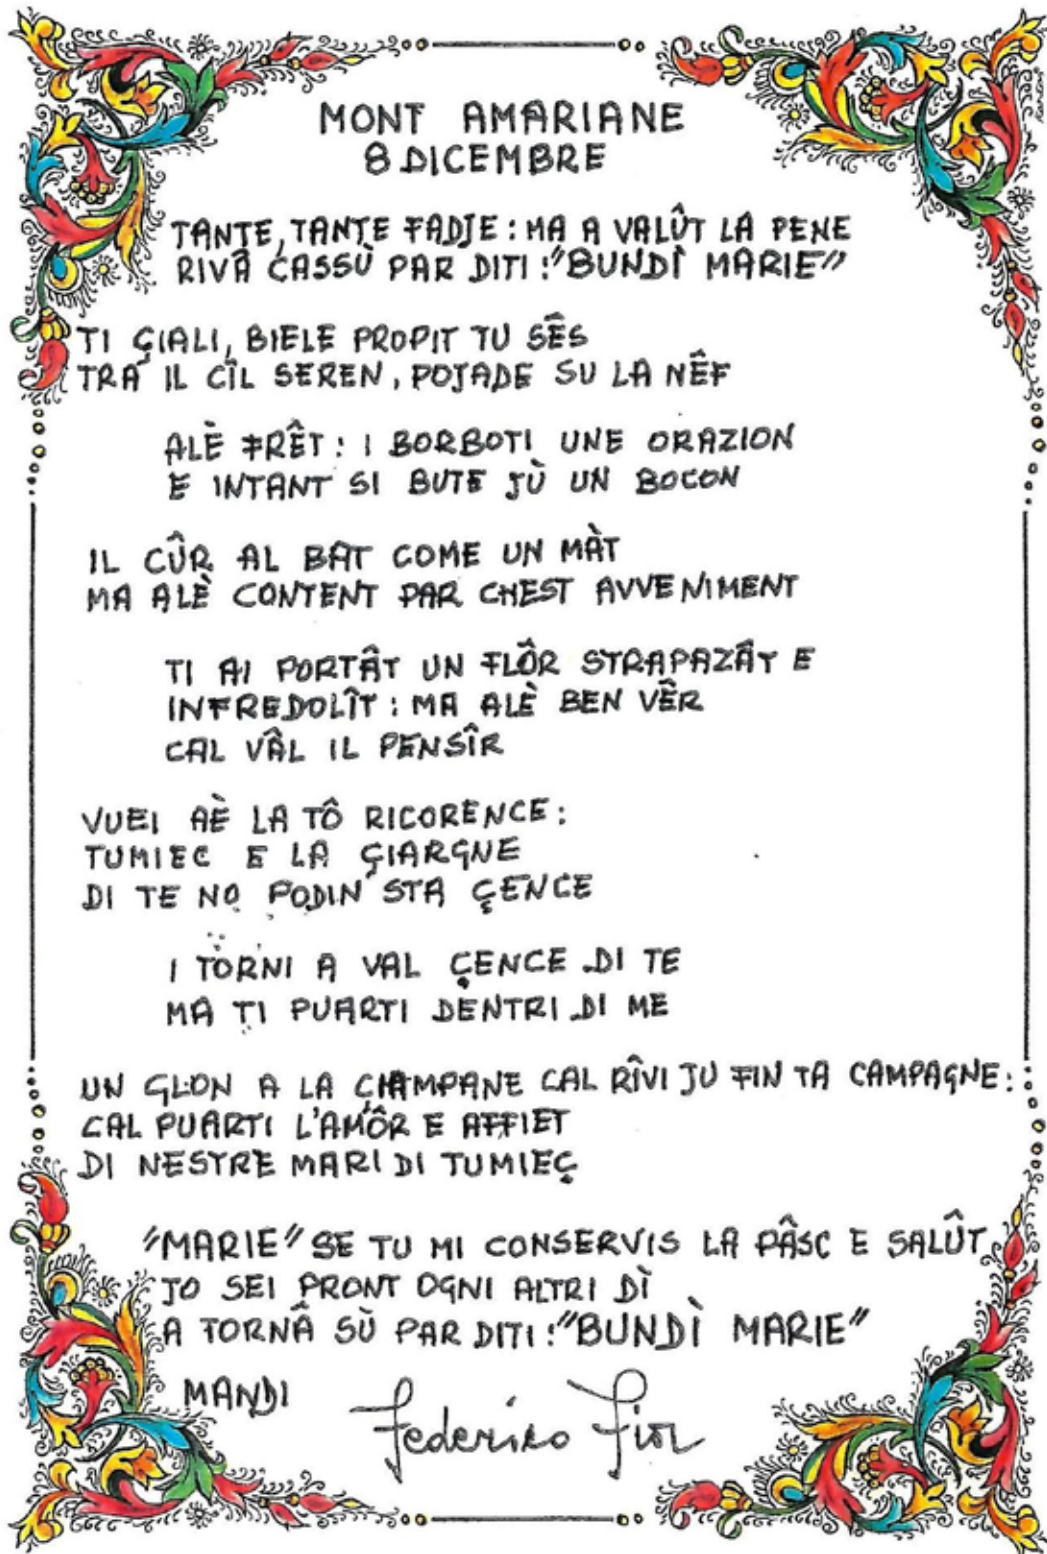 MONT AMARIANE
8 DICEMBRE
TANTE, TANTE FADJE: MA A VALÛT LA PENE
RIVÂ CASSÙ PAR DITI: "BUNDÌ MARIE"
TI ÇIALI, BIELE PROPIT TU SÊS
TRA IL CÎL SEREN, POJADE SU LA NÊF
ALÈ FRÊT: I BORBOTI UNE ORAZION
E INTANT SI BUTE JÙ UN BOCON
IL CÛR AL BAT COME UN MÀT
MA ALÈ CONTENT PAR CHEST AVVENIMENT
TI AI PORTÂT UN FLÔR STRAPAZÂT E
INFREDOLÎT: MA ALÈ BEN VÊR
CAL VÂL IL PENSÎR
VUEI AÈ LA TÔ RICORENCE:
TUMIEC E LA ÇIARGNE
DI TE NO PODIN STA ÇENCE
I TORNI A VAL ÇENCE DI TE
MA TI PUARTI DENTRI DI ME
UN GLON A LA ÇIAMPANE CAL RÎVI JU FIN TA CAMPAGNE:
CAL PUARTI L'AMÔR E AFFIET
DI NESTRE MARI DI TUMIEÇ
"MARIE" SE TU MI CONSERVIS LA PÂSC E SALÛT
JO SEI PRONT OGNI ALTRI DÌ
A TORNÂ SÙ PAR DITI: "BUNDÌ MARIE"
MANDI
Federico Fior